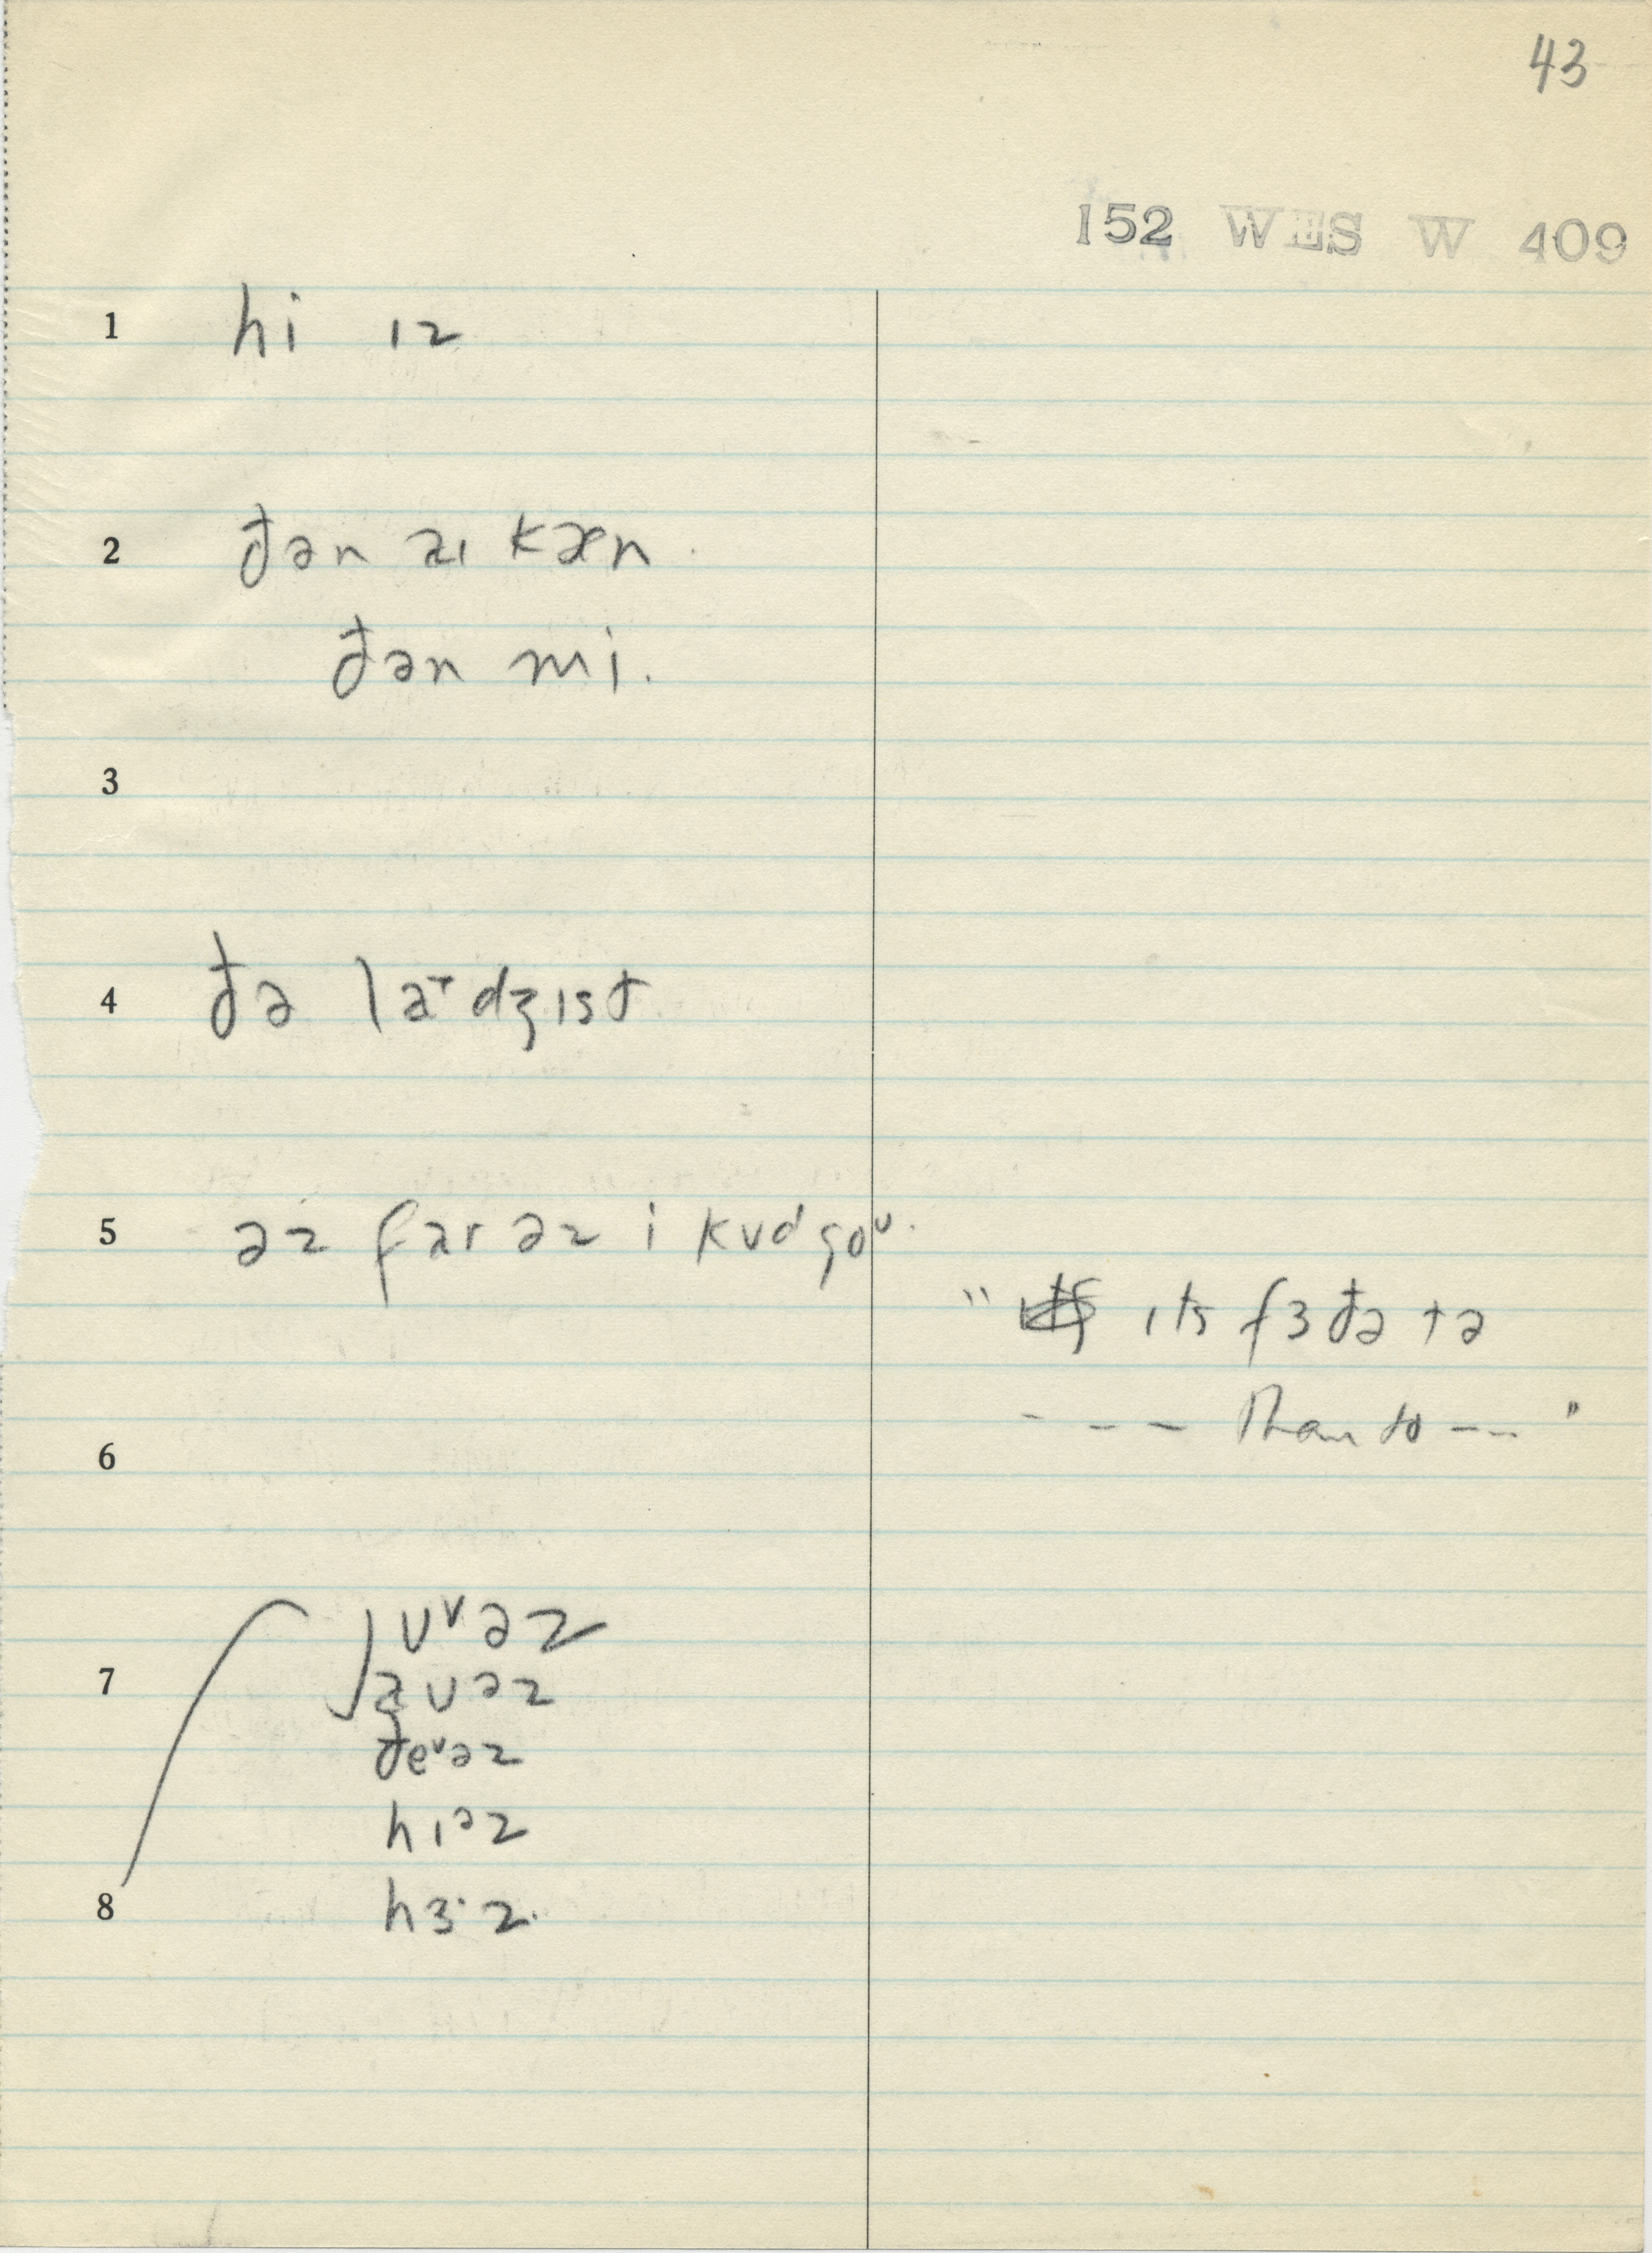 43
152 WES W 409
1 hi ɪz
2 đən aɪ kæn.
đən mi.
3
4 đə laɚdʒɪst
5 əz far əz i kʊd goᴜ.
" ɪts fɜđə tə
--- than to --- "
6
ʊᵛəz
7
đeᵛəz
hɪəz
8 hɜ·z.